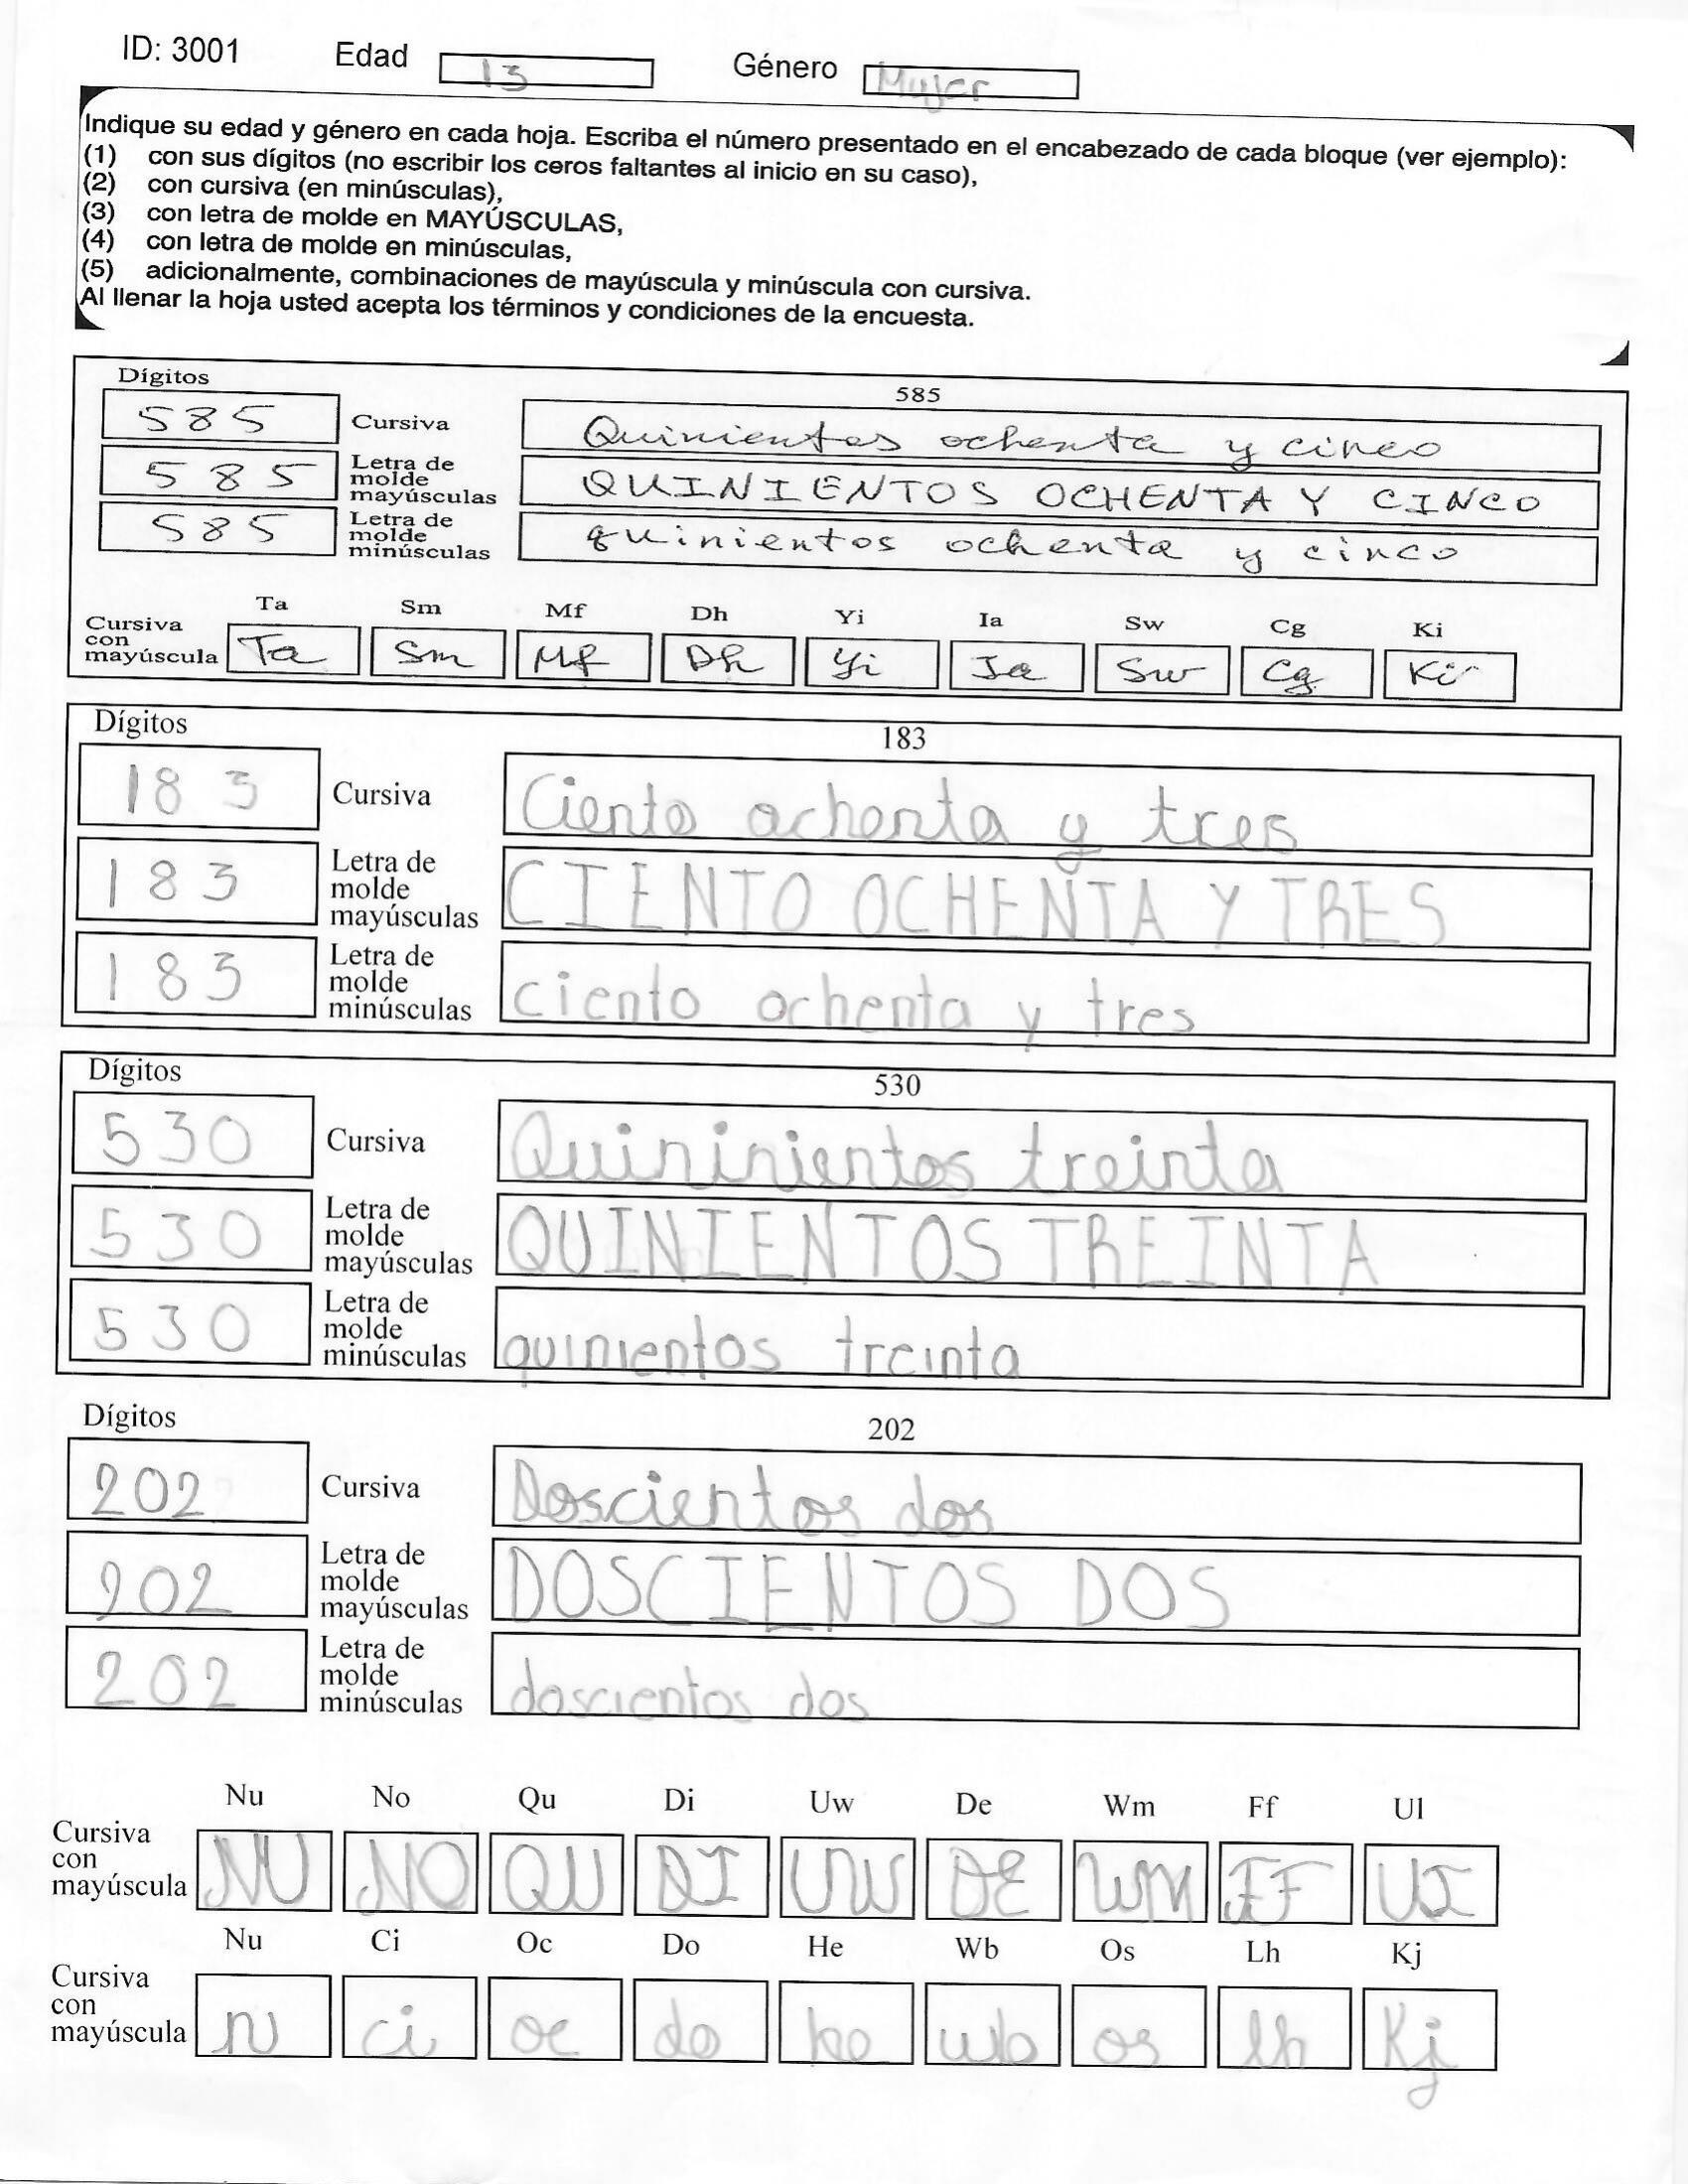 ID: 3001 Edad 13 Género Mujer
Indique su edad y género en cada hoja. Escriba el número presentado en el encabezado de cada bloque (ver ejemplo):
(1) con sus dígitos (no escribir los ceros faltantes al inicio en su caso),
(2) con cursiva (en minúsculas),
(3) con letra de molde en MAYÚSCULAS,
(4) con letra de molde en minúsculas,
(5) adicionalmente, combinaciones de mayúscula y minúscula con cursiva.
Al llenar la hoja usted acepta los términos y condiciones de la encuesta.
Dígitos 585
585 Cursiva Quinientos ochenta y cinco
585 Letra de molde mayúsculas QUINIENTOS OCHENTA Y CINCO
585 Letra de molde minúsculas quinientos ochenta y cinco
Ta Sm Mf Dh Yi Ia Sw Cg Ki
Cursiva con mayúscula Ta Sm Mf Dh Yi Ia Sw Cg Ki
Dígitos 183
183 Cursiva Ciento ochenta y tres
183 Letra de molde mayúsculas CIENTO OCHENTA Y TRES
183 Letra de molde minúsculas ciento ochenta y tres
Dígitos 530
530 Cursiva Quininientos treinta
530 Letra de molde mayúsculas QUINIENTOS TREINTA
530 Letra de molde minúsculas quinientos treinta
Dígitos 202
202 Cursiva Doscientos dos
202 Letra de molde mayúsculas DOSCIENTOS DOS
202 Letra de molde minúsculas doscientos dos
Nu No Qu Di Uw De Wm Ff Ul
Cursiva con mayúscula NU NO QU DI UW DE WM FF UI
Nu Ci Oc Do He Wb Os Lh Kj
Cursiva con mayúscula nu ci oc do he wb os lh Kj